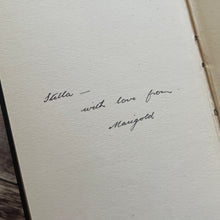 Stella —
with love from
Marigold